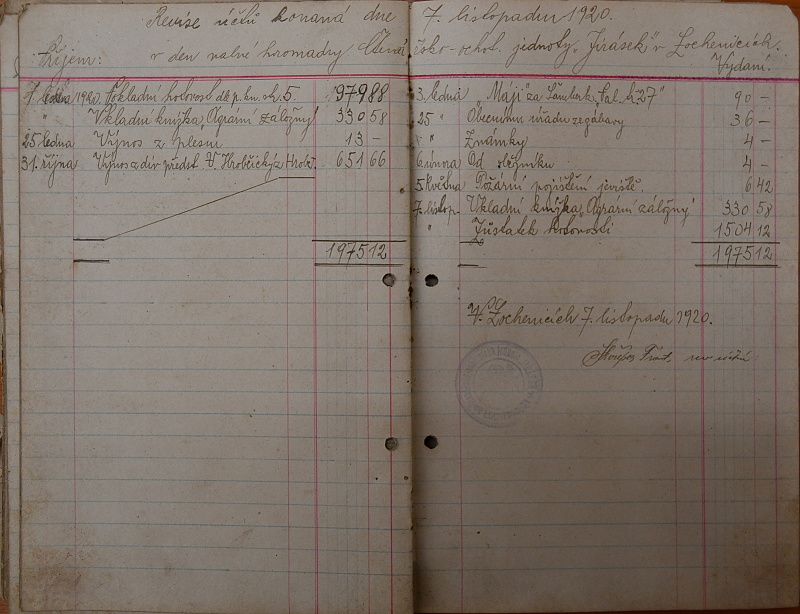 Revise účtů konaná dne 7. listopadu 1920.
Příjem: v den valné hromady Čten. ochot. jednoty „Jirásek" v Lochenicích.
Vydání.
7. ledna 1920. Pokladní hotovost dle p. kn. str. 5. 979 88
" Vkladní knížka „Agrární záložny" 330 58
25 ledna Výnos z plesu 13 -
31. října Výnos z div. předst. V. Hrobčický z Hrobč. 651 66
1975 12
3. ledna „Máji" za 90 -
25 " Obecnímu úřadu 36 -
" " Známky 4 -
6. února Od 4 -
5. května Požární pojištění jeviště. 6 42
7. listop. Vkladní knížka „Agrární záložny" 330 58
" Zůstatek hotovosti 1504 12
1975 12
V Lochenicích 7. listopadu 1920.
Frant.